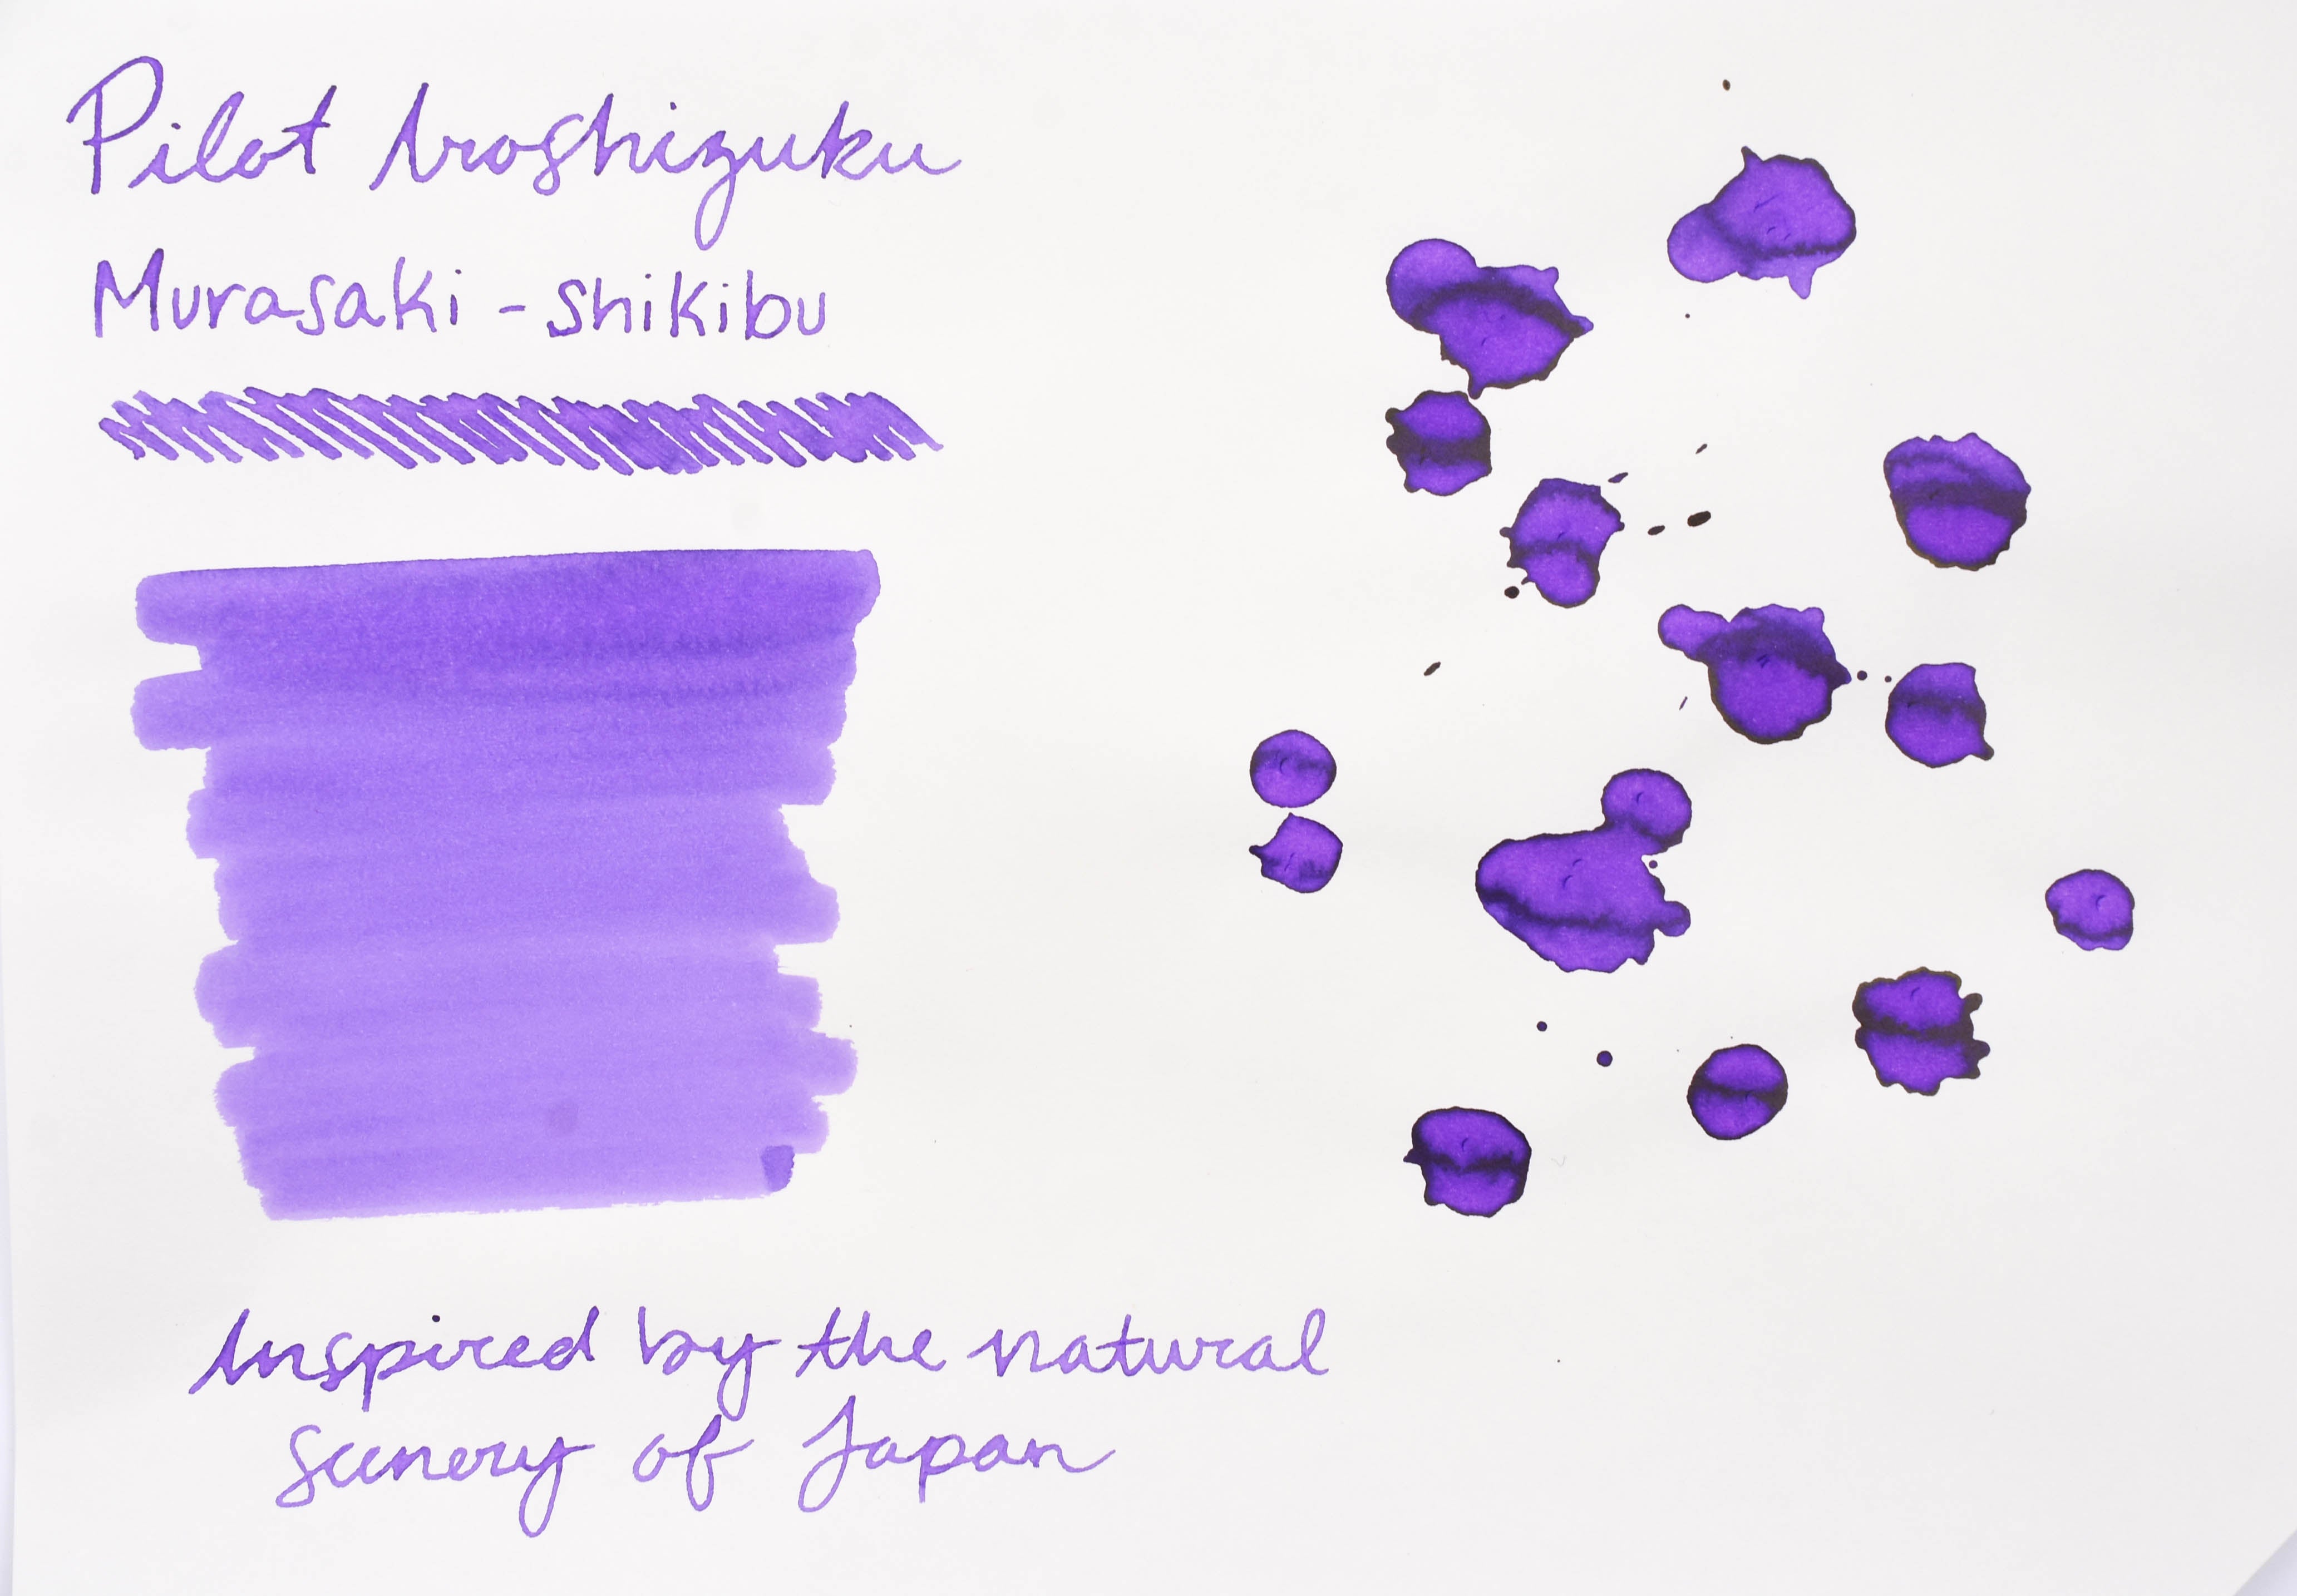 Pilot Iroshizuku
Murasaki - shikibu
Inspired by the natural
scenery of Japan